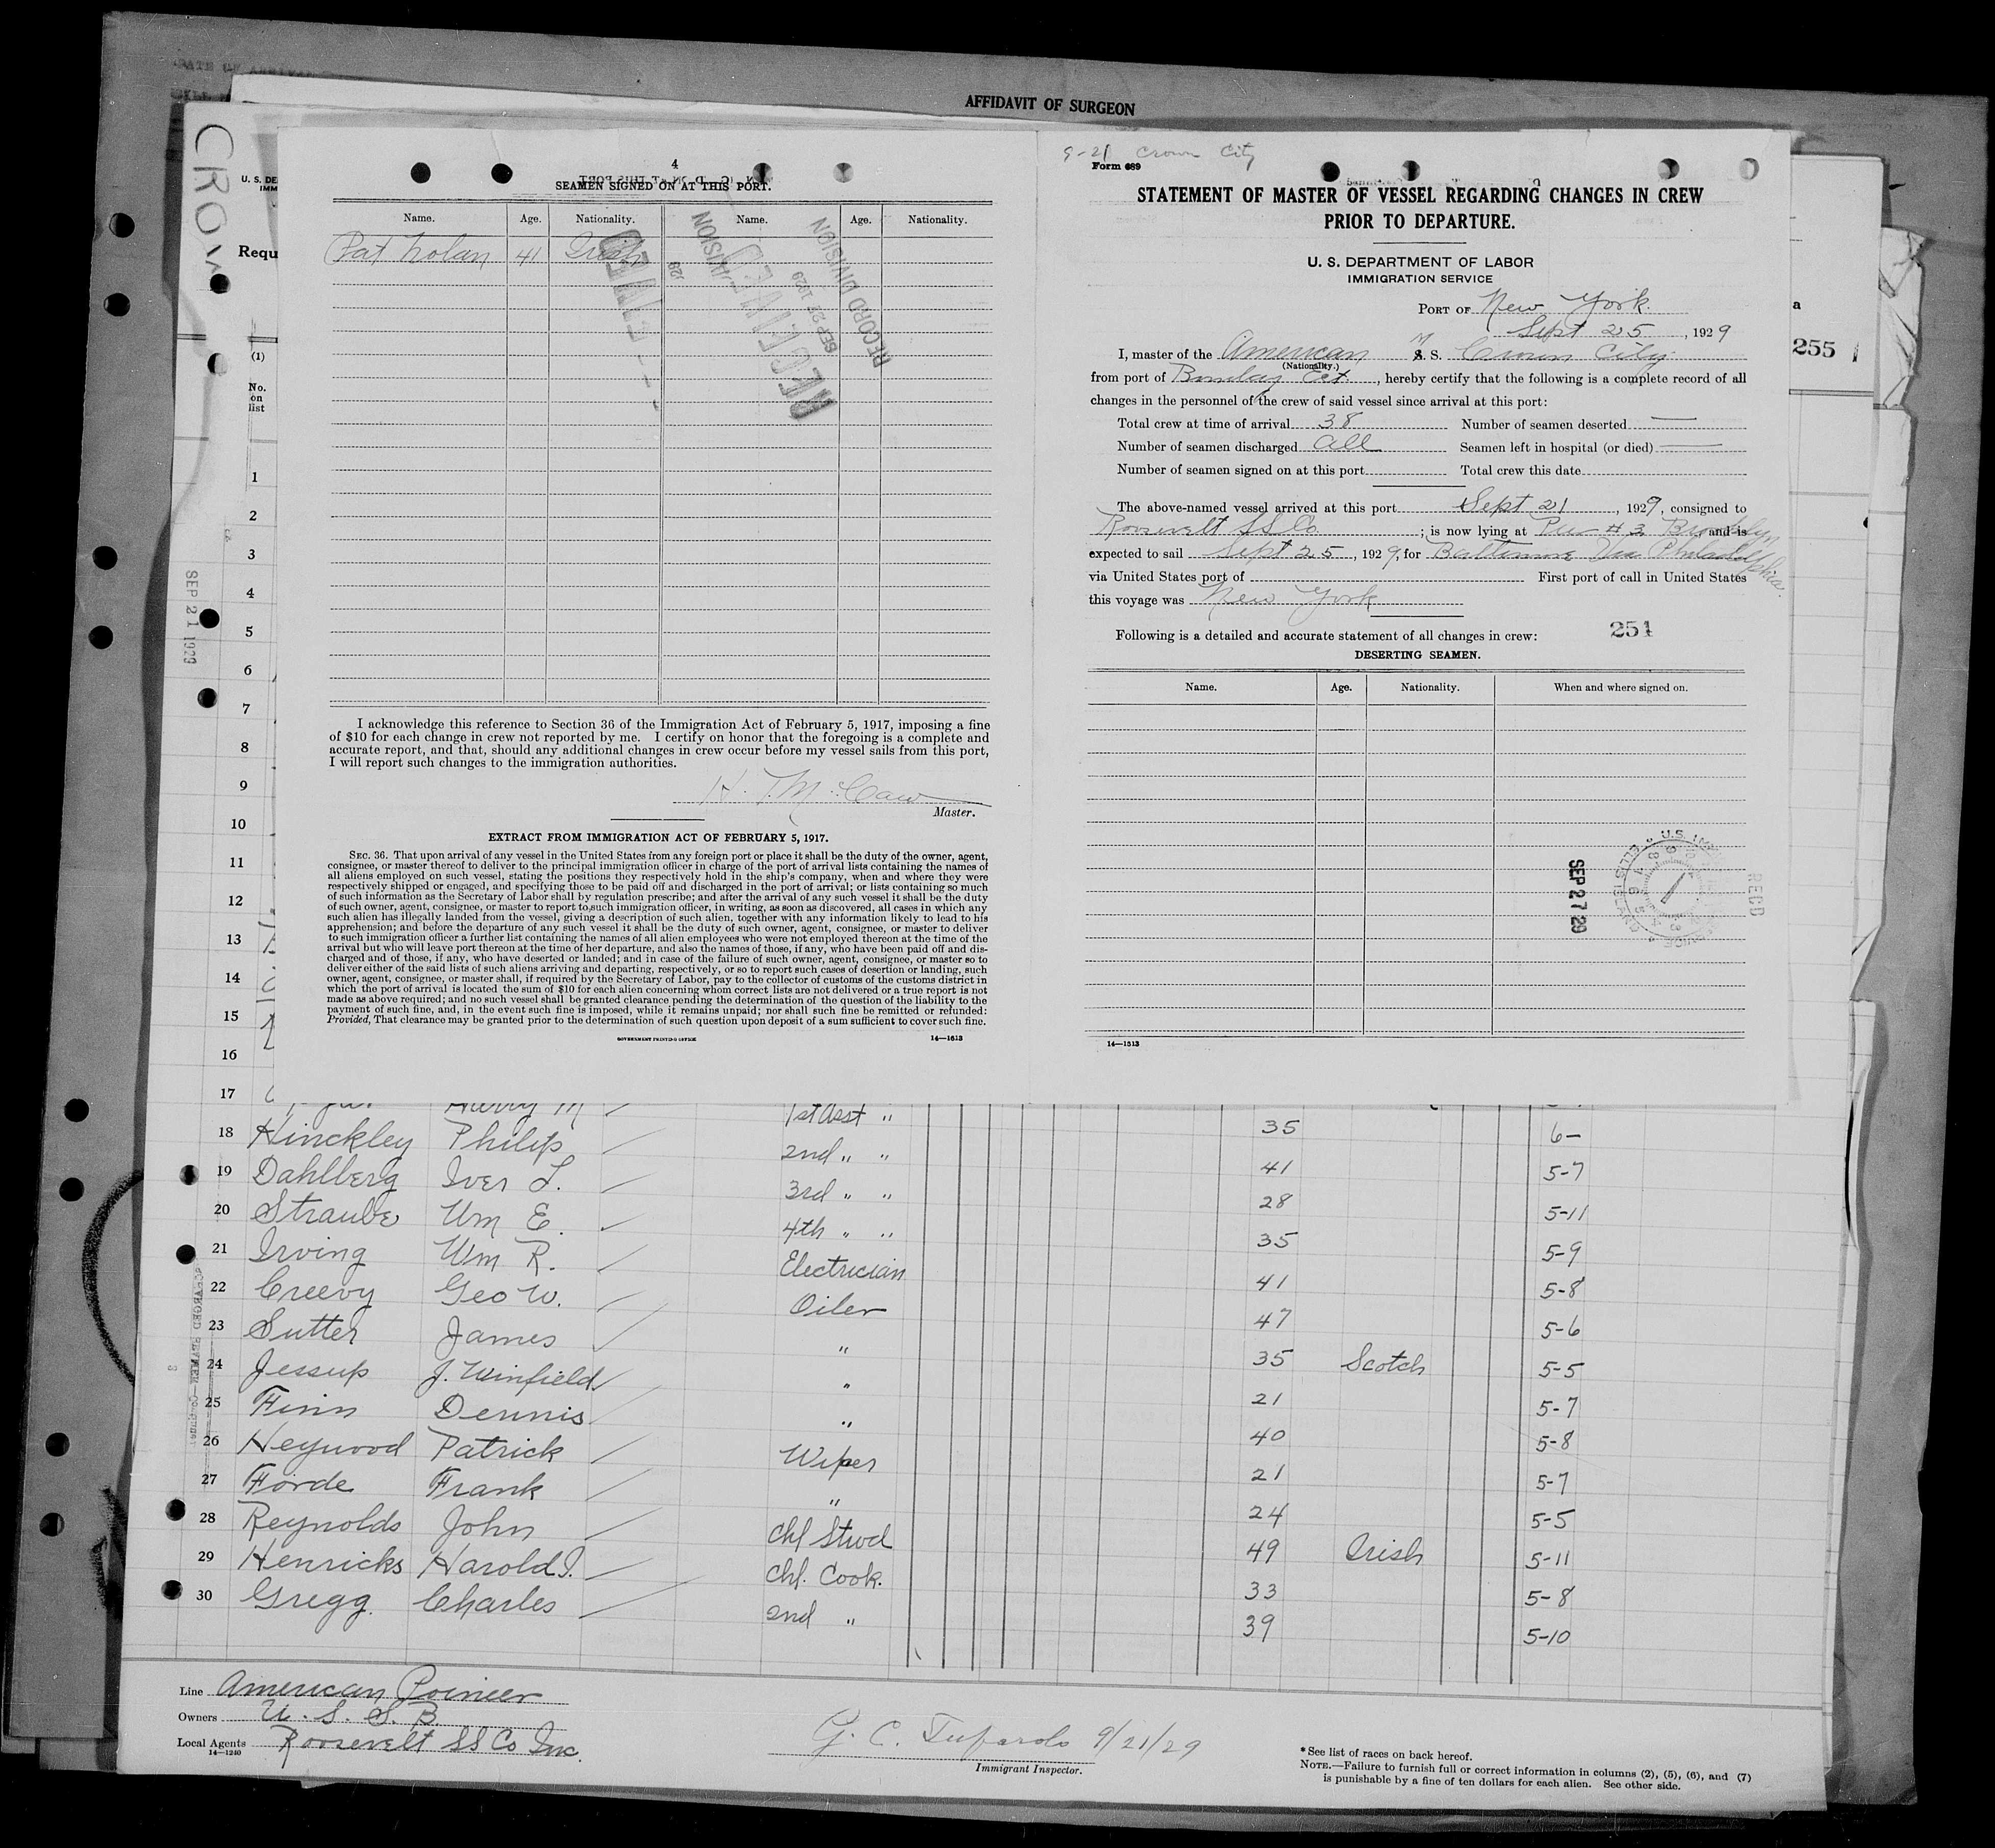 AFFIDAVIT OF SURGEON
CROW
U. S. DE
IMM
Requ
(1)
No.
on
list
4
SEAMEN SIGNED ON AT THIS PORT.
Name. Age. Nationality. Name. Age. Nationality.
Pat Nolan 41 Irish
RECEIVED
SEP 27 1929
RECORD DIVISION
I acknowledge this reference to Section 36 of the Immigration Act of February 5, 1917, imposing a fine
of $10 for each change in crew not reported by me. I certify on honor that the foregoing is a complete and
accurate report, and that, should any additional changes in crew occur before my vessel sails from this port,
I will report such changes to the immigration authorities.
H. T. McCaw
Master.
EXTRACT FROM IMMIGRATION ACT OF FEBRUARY 5, 1917.
SEC. 36. That upon arrival of any vessel in the United States from any foreign port or place it shall be the duty of the owner, agent,
consignee, or master thereof to deliver to the principal immigration officer in charge of the port of arrival lists containing the names of
all aliens employed on such vessel, stating the positions they respectively hold in the ship's company, when and where they were
respectively shipped or engaged, and specifying those to be paid off and discharged in the port of arrival; or lists containing so much
of such information as the Secretary of Labor shall by regulation prescribe; and after the arrival of any such vessel it shall be the duty
of such owner, agent, consignee, or master to report to such immigration officer, in writing, as soon as discovered, all cases in which any
such alien has illegally landed from the vessel, giving a description of such alien, together with any information likely to lead to his
apprehension; and before the departure of any such vessel it shall be the duty of such owner, agent, consignee, or master to deliver
to such immigration officer a further list containing the names of all alien employees who were not employed thereon at the time of the
arrival but who will leave port thereon at the time of her departure, and also the names of those, if any, who have been paid off and dis-
charged and of those, if any, who have deserted or landed; and in case of the failure of such owner, agent, consignee, or master so to
deliver either of the said lists of such aliens arriving and departing, respectively, or so to report such cases of desertion or landing, such
owner, agent, consignee, or master shall, if required by the Secretary of Labor, pay to the collector of customs of the customs district in
which the port of arrival is located the sum of $10 for each alien concerning whom correct lists are not delivered or a true report is not
made as above required; and no such vessel shall be granted clearance pending the determination of the question of the liability to the
payment of such fine, and, in the event such fine is imposed, while it remains unpaid; nor shall such fine be remitted or refunded:
Provided, That clearance may be granted prior to the determination of such question upon deposit of a sum sufficient to cover such fine.
GOVERNMENT PRINTING OFFICE 14—1513
9-21 Crown City
Form 689
STATEMENT OF MASTER OF VESSEL REGARDING CHANGES IN CREW
PRIOR TO DEPARTURE.
U. S. DEPARTMENT OF LABOR
IMMIGRATION SERVICE
PORT OF New York
Sept 25, 1929
I, master of the American M S. S. Crown City
(Nationality.)
from port of Bombay Ect., hereby certify that the following is a complete record of all
changes in the personnel of the crew of said vessel since arrival at this port:
Total crew at time of arrival 38 Number of seamen deserted —
Number of seamen discharged all Seamen left in hospital (or died) —
Number of seamen signed on at this port Total crew this date
The above-named vessel arrived at this port Sept 21, 1929, consigned to
Roosevelt SS Co.; is now lying at Pier # 3 Brooklyn and is
expected to sail Sept 25, 1929, for Baltimore Via Philadelphia
via United States port of First port of call in United States
this voyage was New York
Following is a detailed and accurate statement of all changes in crew: 254
DESERTING SEAMEN.
Name. Age. Nationality. When and where signed on.
SEP 27 29
RECD
14—1513
a
255
SEP 21 1929
1
2
3
4
5
6
7
8
9
10
11
12
13
14
15
16
17 Harry M 1st Asst " 35 6–
18 Hinckley Philip 2nd " " 41 5-7
19 Dahlberg Iver L. 3rd " " 28 5-11
20 Straube Wm E. 4th " " 35 5-9
21 Irving Wm R. Electrician 41 5-8
22 Creevy Geo W. Oiler 47 5-6
23 Sutter James " 35 Scotch 5-5
24 Jessup J. Winfield " 21 5-7
25 Finn Dennis " 40 5-8
26 Heywood Patrick Wiper 21 5-7
27 Forde Frank " 24 5-5
28 Reynolds John Chf Stwd 49 Irish 5-11
29 Henricks Harold I. Chf. Cook. 33 5-8
30 Gregg. Charles 2nd " 39 5-10
Line American Poineer
Owners U. S. S. B.
Local Agents Roosevelt SS Co Inc.
14—1240
G. C. Tufarolo 9/21/29
Immigrant Inspector.
* See list of races on back hereof.
NOTE.—Failure to furnish full or correct information in columns (2), (5), (6), and (7)
is punishable by a fine of ten dollars for each alien. See other side.